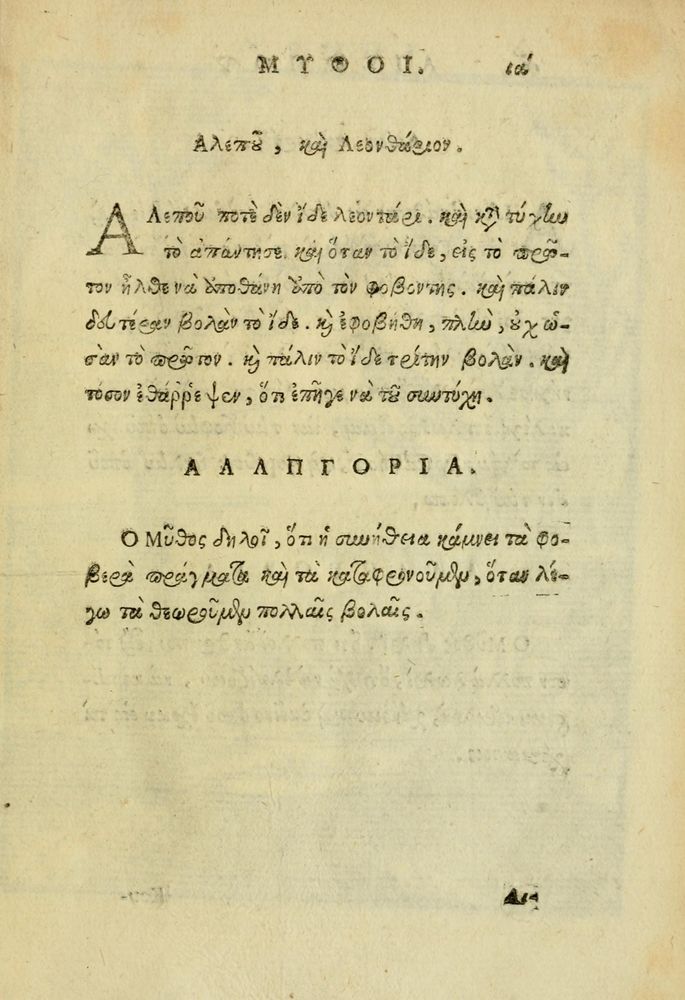 ΜΥΘΟΙ. ια΄
Αλεποῦ, καὶ Λεονθάριον.
ΑΛεποῦ ποτὲ δὲν ἴδε λεοντάρι. καὶ κατὰ τύχην
τὸ ἀπάντησε. καὶ ὅταν τὸ ἴδε, εἰς τὸ πρῶ-
τον ἦλθε νὰ ὑποθάνῃ ὑπὸ τὸν φοβοντης. καὶ πάλιν
δευτέραν βολὰν τὸ ἴδε. καὶ ἐφοβήθη, πλὴν, ὀχ ὡ-
σὰν τὸ πρῶτον. καὶ πάλιν τὸ ἴδε τρίτην βολὰν. καὶ
τόσον ἐθάῤῥεψεν, ὅτι ἐπῆγε νὰ τοῦ συντύχῃ.
ΑΛΛΠΓΟΡΙΑ.
Ο Μῦθος δηλοῖ, ὅτι ἡ συνήθεια κάμνει τὰ φο-
βερὰ πράγματα καὶ τὰ καταφρονοῦμεν, ὅταν λέ-
γω τὰ θεωροῦμεν πολλαῖς βολαῖς.